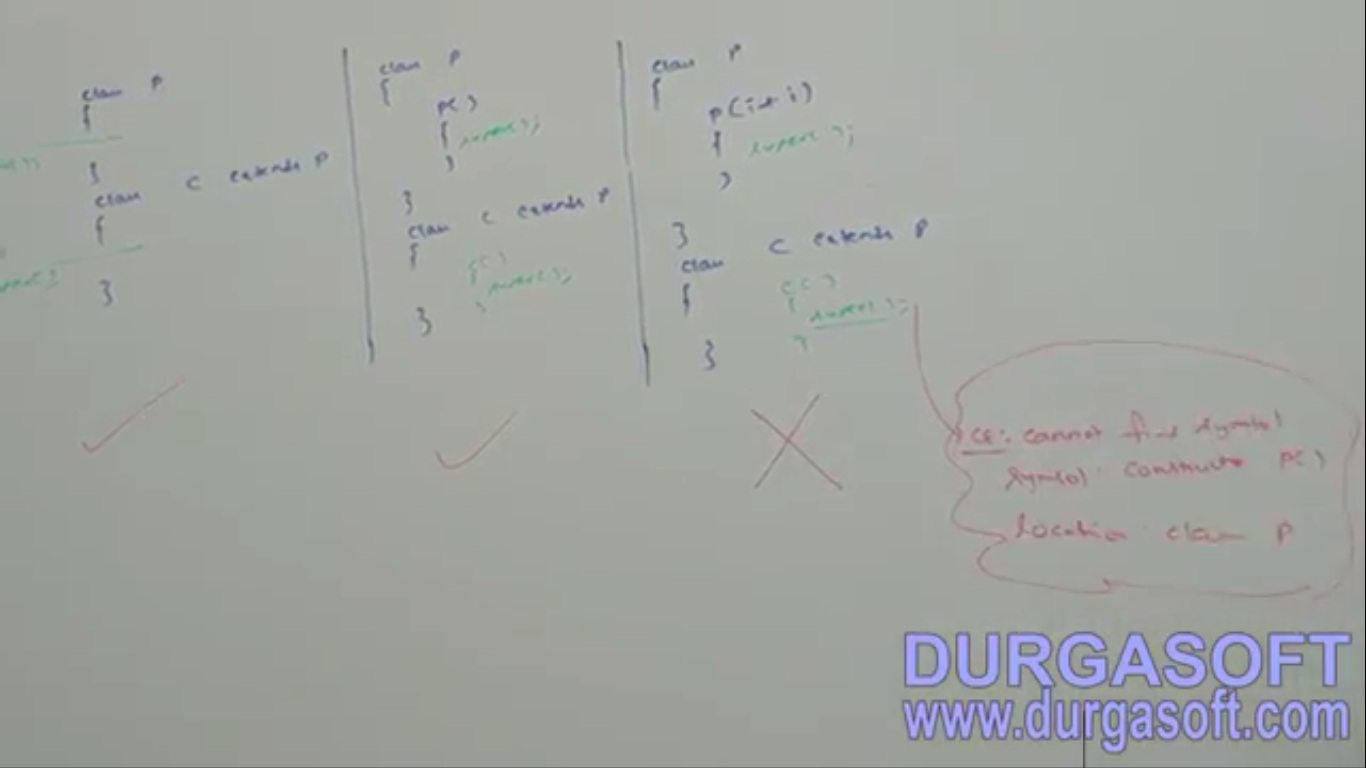 class P
{
}
class C extends P
{
}
class P
{
P()
{ super();
}
}
class C extends P
{
C()
{ super();
}
}
class P
{
P(int i)
{ super();
}
}
class C extends P
{
C()
{ super();
}
}
CE: cannot find symbol
symbol: constructor P()
location: class P
DURGASOFT
www.durgasoft.com